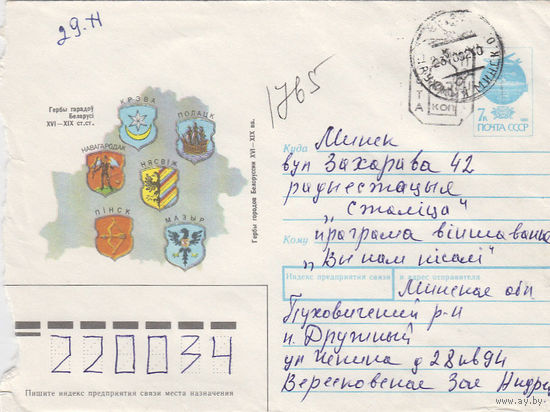 29.XI
1765
Гербы гарадоў
Беларусі
XVI—XIX ст.ст.
КРЭВА
ПОЛАЦК
НАВАГАРОДАК
НЯСВІЖ
ПІНСК
МАЗЫР
Гербы городов Белоруссии XVI—XIX вв.
А КОП
7к
ПОЧТА СССР
Куда Минск
вул Захарава 42
радиестацыя
„Сталіца"
Кому праграма віншаванн
„Вы нам пісалі"
Индекс предприятия связи и адрес отправителя
Минская обл.
Пуховичский р-н
п. Дружный
ул Ленина д 28 кв 94
Зоя
220034
Пишите индекс предприятия связи места назначения
www.ay.by